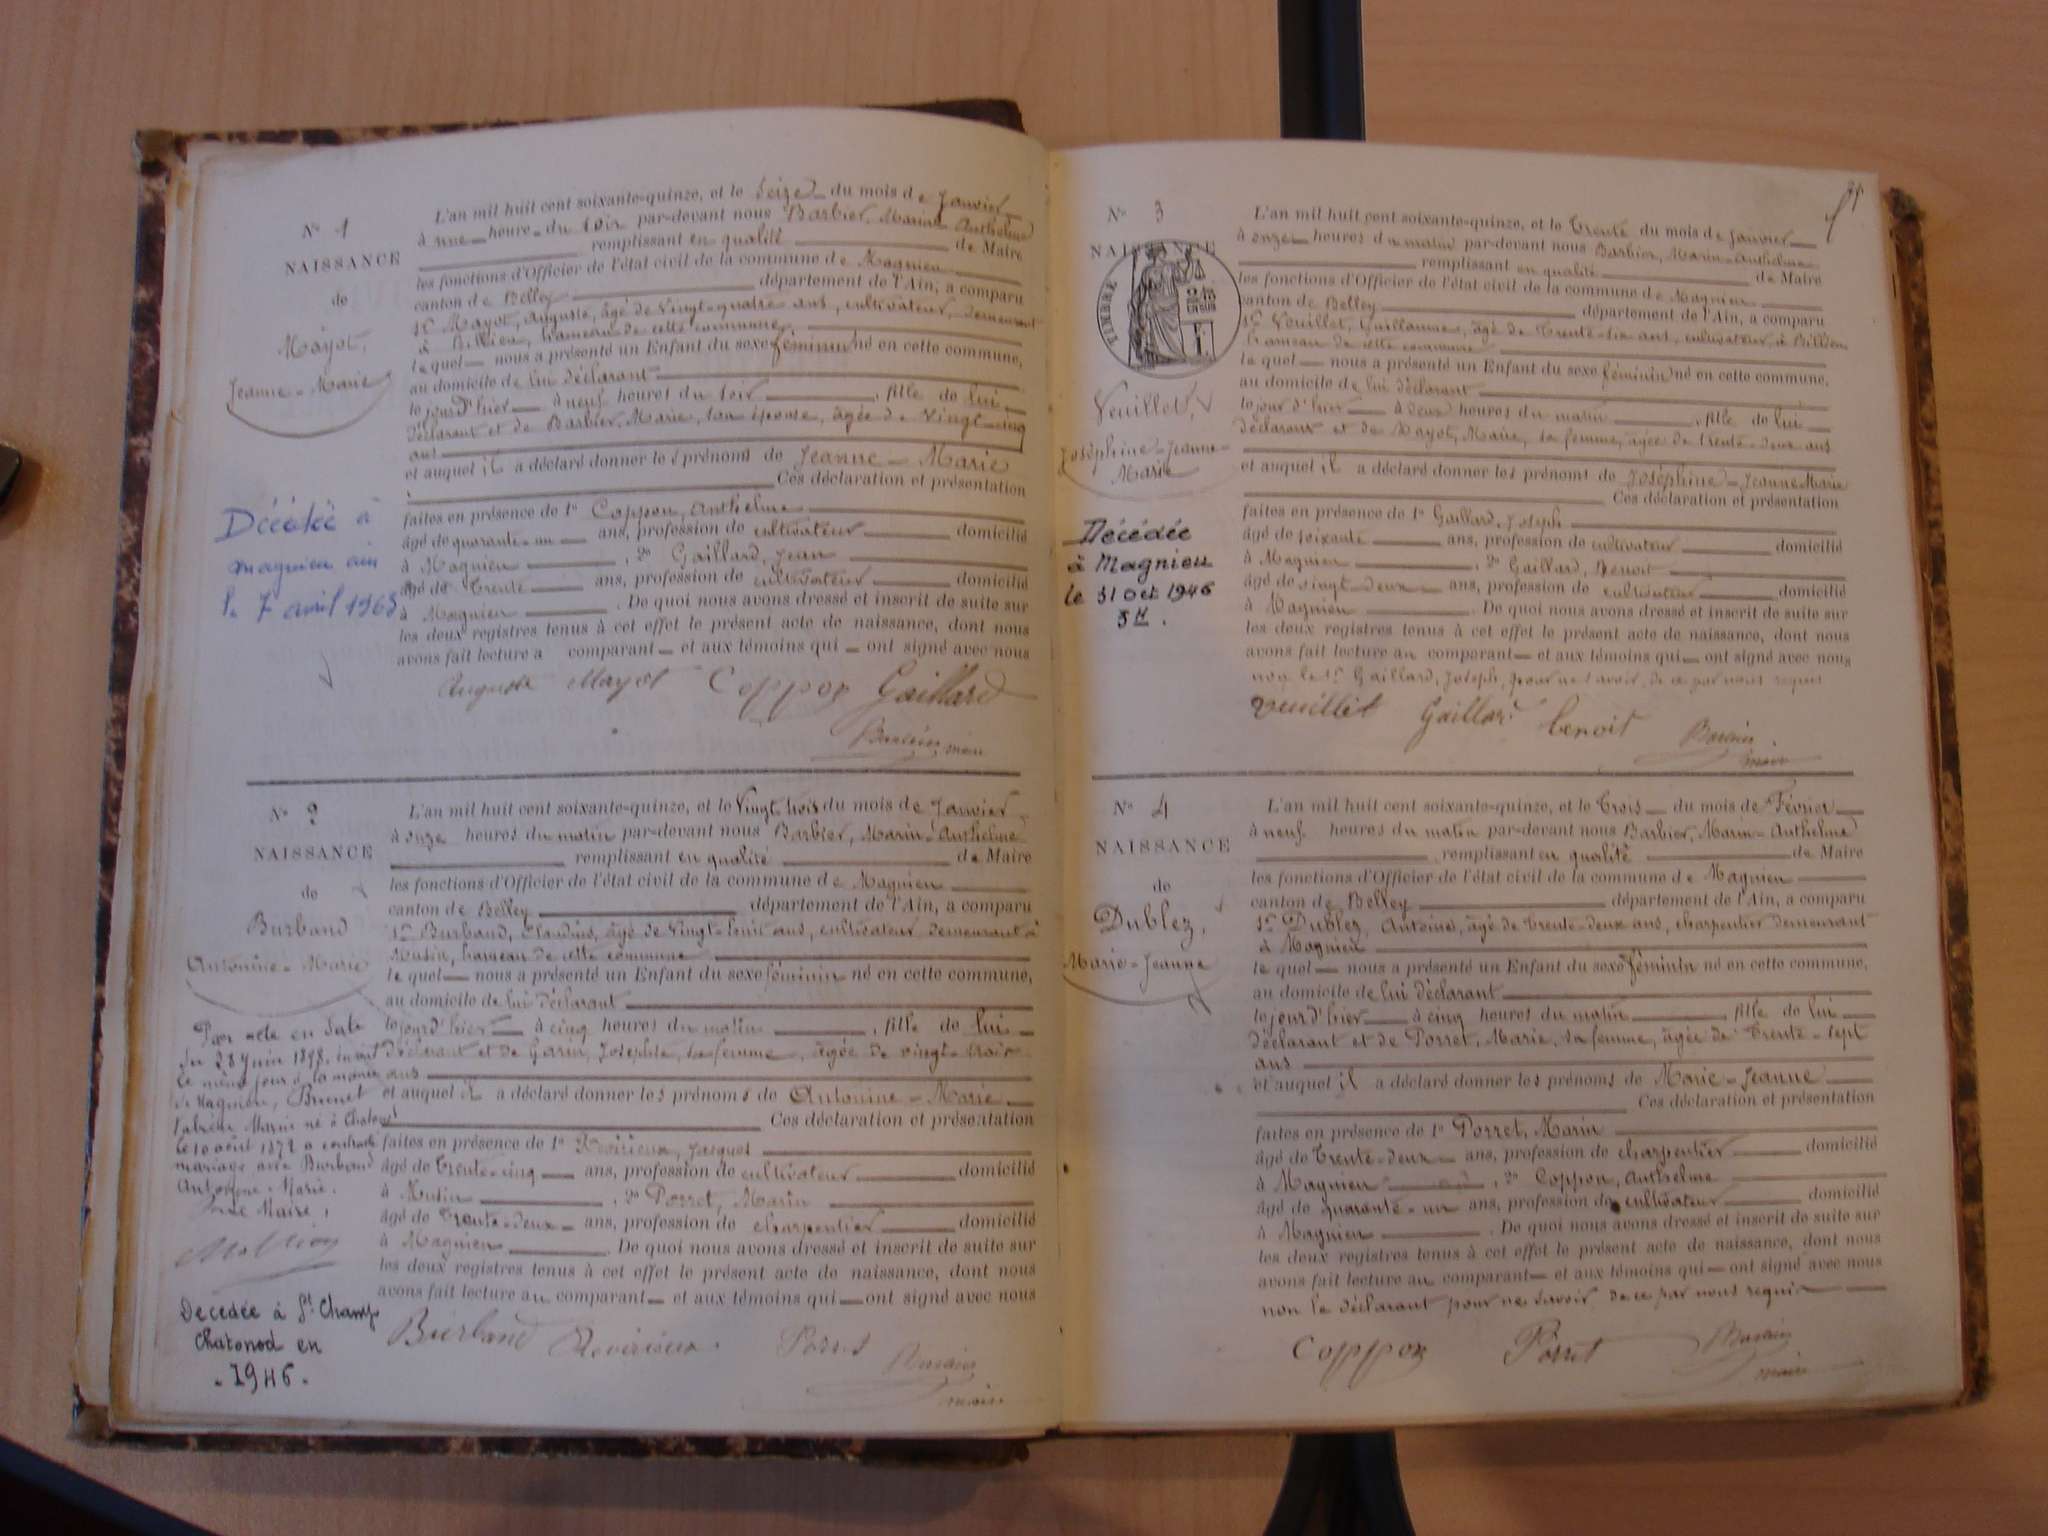 N° 1
NAISSANCE
de
Mayot,
Jeanne-Marie
Décédée à
magnieu ain
le 7 avril 1963
L'an mil huit cent soixante-quinze, et le Seize du mois de Janvier
à une heure du soir par-devant nous Barbier, Marin-Anthelme
remplissant en qualité de Maire
les fonctions d'Officier de l'état civil de la commune de Magnieu
canton de Belley département de l'Ain, a comparu
Sr Mayot, Auguste, âgé de Vingt-quatre ans, cultivateur, demeurant
à Billieu, hameau de cette commune,
lequel nous a présenté un Enfant du sexe féminin né en cette commune,
au domicile de lui déclarant
le jour d'hier à neuf heures du soir, fille de lui
déclarant et de Barbier, Marie, son épouse, âgée de Vingt-cinq
ans
et auquel il a déclaré donner les prénoms de Jeanne-Marie
Ces déclaration et présentation
faites en présence de 1° Coppon, Anthelme
âgé de quarante-un ans, profession de cultivateur domicilié
à Magnieu, 2° Gaillard, Jean
âgé de Trente ans, profession de cultivateur domicilié
à Magnieu. De quoi nous avons dressé et inscrit de suite sur
les deux registres tenus à cet effet le présent acte de naissance, dont nous
avons fait lecture a comparant et aux témoins qui ont signé avec nous
Auguste Mayot Coppon Gaillard
Barbier, maire
N° 2
NAISSANCE
de
Burband
Antonine-Marie
Par acte en date
du 28 Juin 1898, inscrit
le même jour à la mairie
de Magnieu, Brunet
Marin né à
le 10 août 1872 a contracté
mariage avec Burband
Antonine-Marie.
Le Maire,
Décédée à St Champ
Chatonod en
1946.
L'an mil huit cent soixante-quinze, et le Vingt trois du mois de Janvier
à onze heures du matin par-devant nous Barbier, Marin-Anthelme
remplissant en qualité de Maire
les fonctions d'Officier de l'état civil de la commune de Magnieu
canton de Belley département de l'Ain, a comparu
Sr Burband, Claudius, âgé de Vingt-huit ans, cultivateur demeurant à
Musin, hameau de cette commune
lequel nous a présenté un Enfant du sexe féminin né en cette commune,
au domicile de lui déclarant
le jour d'hier à cinq heures du matin, fille de lui
déclarant et de Garin, Josephte, sa femme, âgée de vingt-trois
ans
et auquel il a déclaré donner les prénoms de Antonine-Marie
Ces déclaration et présentation
faites en présence de 1° Révérieux, Jacques
âgé de Trente-cinq ans, profession de cultivateur domicilié
à Musin, 2° Porret, Marin
âgé de Trente-deux ans, profession de charpentier domicilié
à Magnieu. De quoi nous avons dressé et inscrit de suite sur
les deux registres tenus à cet effet le présent acte de naissance, dont nous
avons fait lecture au comparant et aux témoins qui ont signé avec nous
Burband Porret Barbier
maire
N° 3
NAISSANCE
TIMBRE
Veuillet,
Joséphine-Jeanne-
Marie
Décédée
à Magnieu
le 31 Oct 1946
5H.
L'an mil huit cent soixante-quinze, et le Trente du mois de Janvier
à onze heures du matin par-devant nous Barbier, Marin-Anthelme
remplissant en qualité de Maire
les fonctions d'Officier de l'état civil de la commune de Magnieu
canton de Belley département de l'Ain, a comparu
Sr Veuillet, Guillaume, âgé de Trente-six ans, cultivateur, à Billieu
hameau de cette commune
lequel nous a présenté un Enfant du sexe féminin né en cette commune,
au domicile de lui déclarant
le jour d'hier à deux heures du matin, fille de lui
déclarant et de Mayot, Marie, sa femme, âgée de trente-deux ans
et auquel il a déclaré donner les prénoms de Joséphine-Jeanne Marie
Ces déclaration et présentation
faites en présence de 1° Gaillard, Joseph
âgé de soixante ans, profession de cultivateur domicilié
à Magnieu, 2° Gaillard, Benoit
âgé de vingt-deux ans, profession de cultivateur domicilié
à Magnieu. De quoi nous avons dressé et inscrit de suite sur
les deux registres tenus à cet effet le présent acte de naissance, dont nous
avons fait lecture au comparant et aux témoins qui ont signé avec nous
non le Sr Gaillard, Joseph, pour ne savoir, de ce par nous requis
Veuillet Gaillard benoit Barbier
maire
N° 4
NAISSANCE
de
Dublez,
Marie-Jeanne
L'an mil huit cent soixante-quinze, et le Trois du mois de Février
à neuf heures du matin par-devant nous Barbier, Marin-Anthelme
remplissant en qualité de Maire
les fonctions d'Officier de l'état civil de la commune de Magnieu
canton de Belley département de l'Ain, a comparu
Sr Dublez, Antoine, âgé de Trente-deux ans, charpentier demeurant
à Magnieu
lequel nous a présenté un Enfant du sexe féminin né en cette commune,
au domicile de lui déclarant
le jour d'hier à cinq heures du matin, fille de lui
déclarant et de Porret, Marie, sa femme, âgée de Trente-sept
ans
et auquel il a déclaré donner les prénoms de Marie-Jeanne
Ces déclaration et présentation
faites en présence de 1° Porret, Marin
âgé de Trente-deux ans, profession de charpentier domicilié
à Magnieu, 2° Coppon, Anthelme
âgé de quarante-un ans, profession de cultivateur domicilié
à Magnieu. De quoi nous avons dressé et inscrit de suite sur
les deux registres tenus à cet effet le présent acte de naissance, dont nous
avons fait lecture au comparant et aux témoins qui ont signé avec nous
non le déclarant pour ne savoir, de ce par nous requis
Coppon Porret Barbier
maire